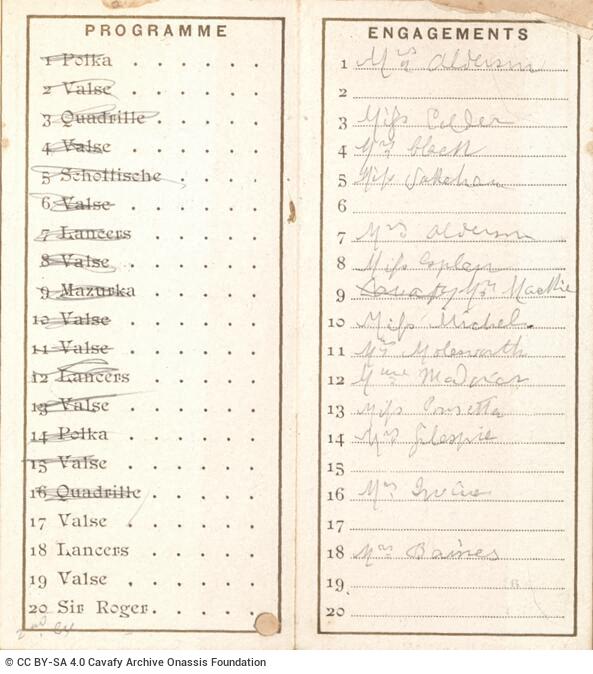 PROGRAMME
1 Polka
2 Valse
3 Quadrille
4 Valse
5 Schottische
6 Valse
7 Lancers
8 Valse
9 Mazurka
10 Valse
11 Valse
12 Lancers
13 Valse
14 Polka
15 Valse
16 Quadrille
17 Valse
18 Lancers
19 Valse
20 Sir Roger
ENGAGEMENTS
1 Mrs Alderson
2
3 Miss Calder
4 Mrs Black
5 Miss
6
7 Mrs Alderson
8 Miss
9 Cavafy Mrs Mackie
10 Miss Michel
11 Mrs Molesworth
12 Mme
13 Miss
14 Mrs Gilespie
15
16 Mrs Irvine
17
18 Mrs Baines
19
20
© CC BY-SA 4.0 Cavafy Archive Onassis Foundation